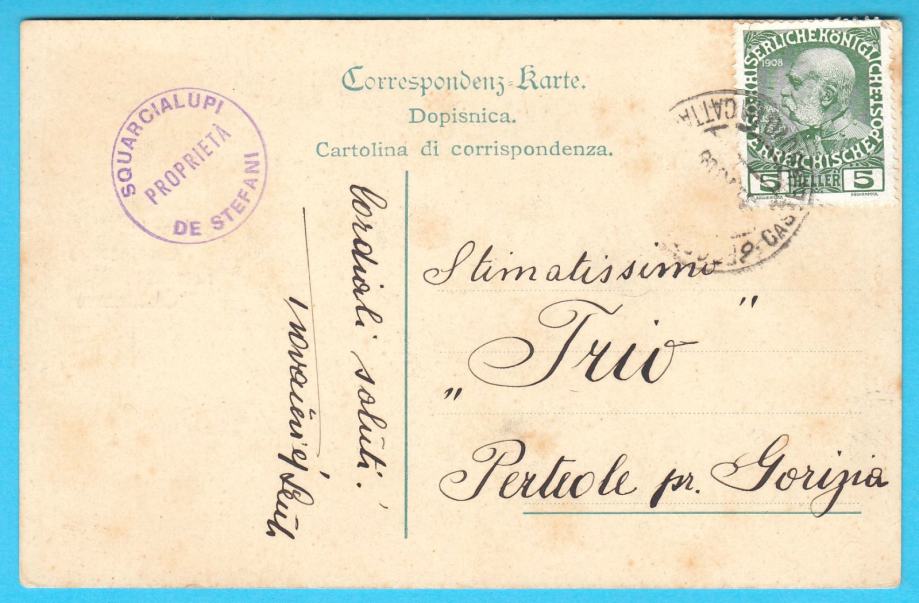 Correspondenz-Karte.
Dopisnica.
Cartolina di corrispondenza.
SQUARCIALUPI
PROPRIETÀ
DE STEFANI
KAISERLICHE KÖNIGLICHE ÖSTERREICHISCHE
1908
5 HELLER 5
CATTA
CAS
Cordiali saluti!
Stimatissimo
„Trio"
Perteole pr. Gorizia